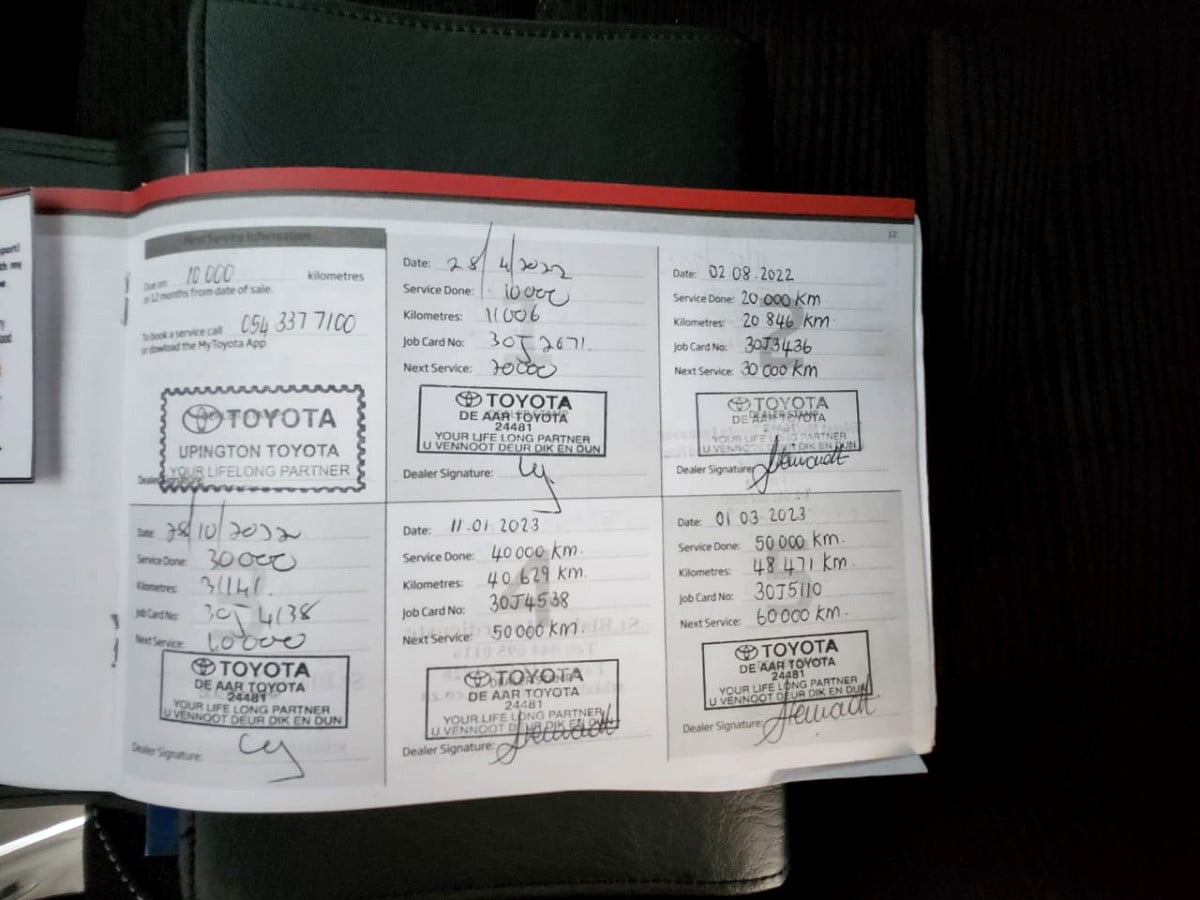 12
First Service Information
Due on: 10 000 kilometres
or 12 months from date of sale.
To book a service call 054 337 7100
or dowload the MyToyota App
TOYOTA
UPINGTON TOYOTA
YOUR LIFELONG PARTNER
Date: 28/4/2022
Service Done: 10000
Kilometres: 11006
Job Card No: 30J2671.
Next Service: 20000
TOYOTA
DE AAR TOYOTA
24481
YOUR LIFE LONG PARTNER
U VENNOOT DEUR DIK EN DUN
Dealer Signature:
Date: 02 08.2022
Service Done: 20 000 km
Kilometres: 20 846 km.
Job Card No: 30J3436
Next Service: 30 000 km
TOYOTA
DE AAR TOYOTA
24481
YOUR LIFE LONG PARTNER
U VENNOOT DEUR DIK EN DUN
Dealer Signature:
Date: 28/10/2022
Service Done: 30000
Kilometres: 31141.
Job Card No: 30J4138
Next Service:
TOYOTA
DE AAR TOYOTA
24481
YOUR LIFE LONG PARTNER
U VENNOOT DEUR DIK EN DUN
Dealer Signature:
Date: 11.01.2023
Service Done: 40000 km.
Kilometres: 40 629 km.
Job Card No: 30J4538
Next Service: 50000 km.
TOYOTA
DE AAR TOYOTA
24481
YOUR LIFE LONG PARTNER
U VENNOOT DEUR DIK EN DUN
Dealer Signature:
Date: 01 03 2023
Service Done: 50 000 km.
Kilometres: 48 471 km.
Job Card No: 30J5110
Next Service: 60000 km.
TOYOTA
DE AAR TOYOTA
24481
YOUR LIFE LONG PARTNER
U VENNOOT DEUR DIK EN DUN
Dealer Signature: